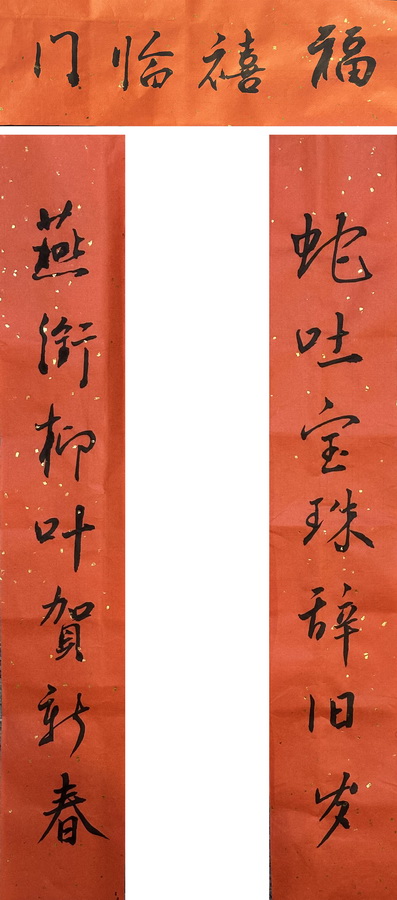 福禧临门
蛇吐宝珠辞旧岁
燕衔柳叶贺新春